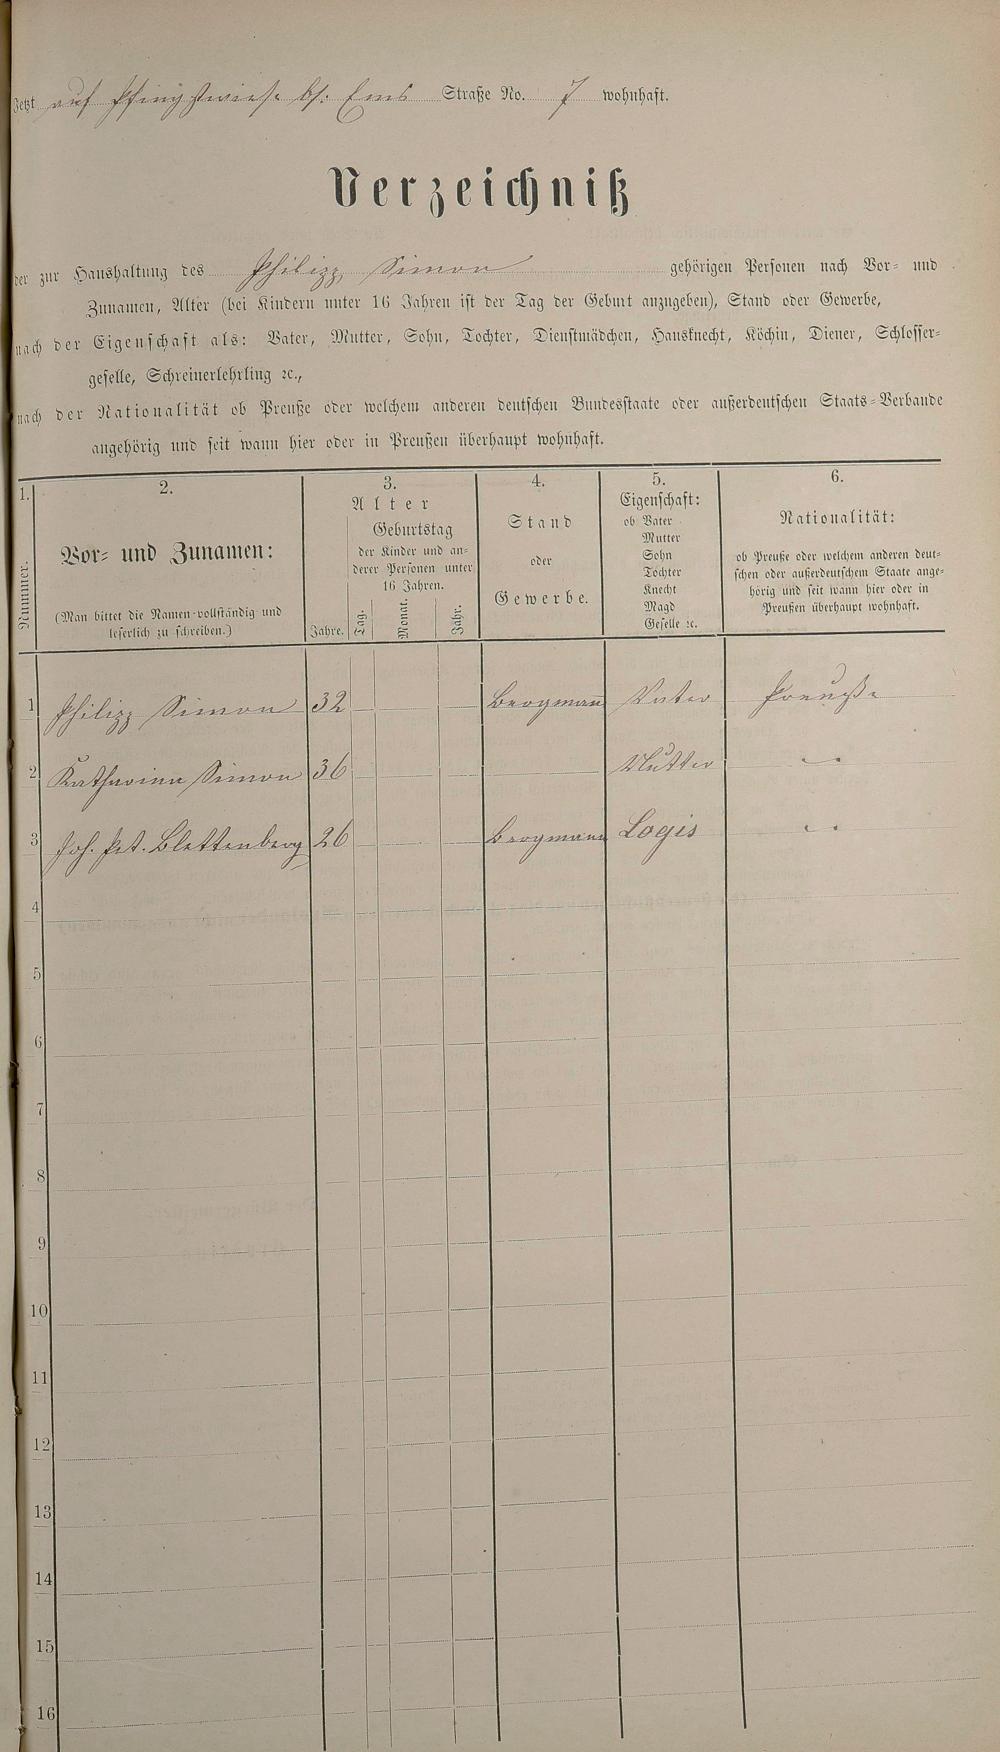 Jetzt auf Pfingstwiese bei Ems Straße No. 7 wohnhaft.
Verzeichniß
der zur Haushaltung des Philipp Simon gehörigen Personen nach Vor- und
Zunamen, Alter (bei Kindern unter 16 Jahren ist der Tag der Geburt anzugeben), Stand oder Gewerbe,
nach der Eigenschaft als: Vater, Mutter, Sohn, Tochter, Dienstmädchen, Hausknecht, Köchin, Diener, Schlosser-
geselle, Schreinerlehrling ꝛc.,
nach der Nationalität ob Preuße oder welchem anderen deutschen Bundesstaate oder außerdeutschen Staats-Verbande
angehörig und seit wann hier oder in Preußen überhaupt wohnhaft.
1.
Nummer.
2.
Vor- und Zunamen:
(Man bittet die Namen vollständig und
leserlich zu schreiben.)
3.
Alter
Geburtstag
der Kinder und an-
derer Personen unter
16 Jahren.
Jahre. Tag. Monat. Jahr.
4.
Stand
oder
Gewerbe.
5.
Eigenschaft:
ob Vater
Mutter
Sohn
Tochter
Knecht
Magd
Geselle ꝛc.
6.
Nationalität:
ob Preuße oder welchem anderen deut-
schen oder außerdeutschem Staate ange-
hörig und seit wann hier oder in
Preußen überhaupt wohnhaft.
1 Philipp Simon 32 Bergmann Vater Preuße
2 Katharina Simon 36 Mutter "
3 Joh. Pet. Blettenberg 26 Bergmann Logis "
4
5
6
7
8
9
10
11
12
13
14
15
16